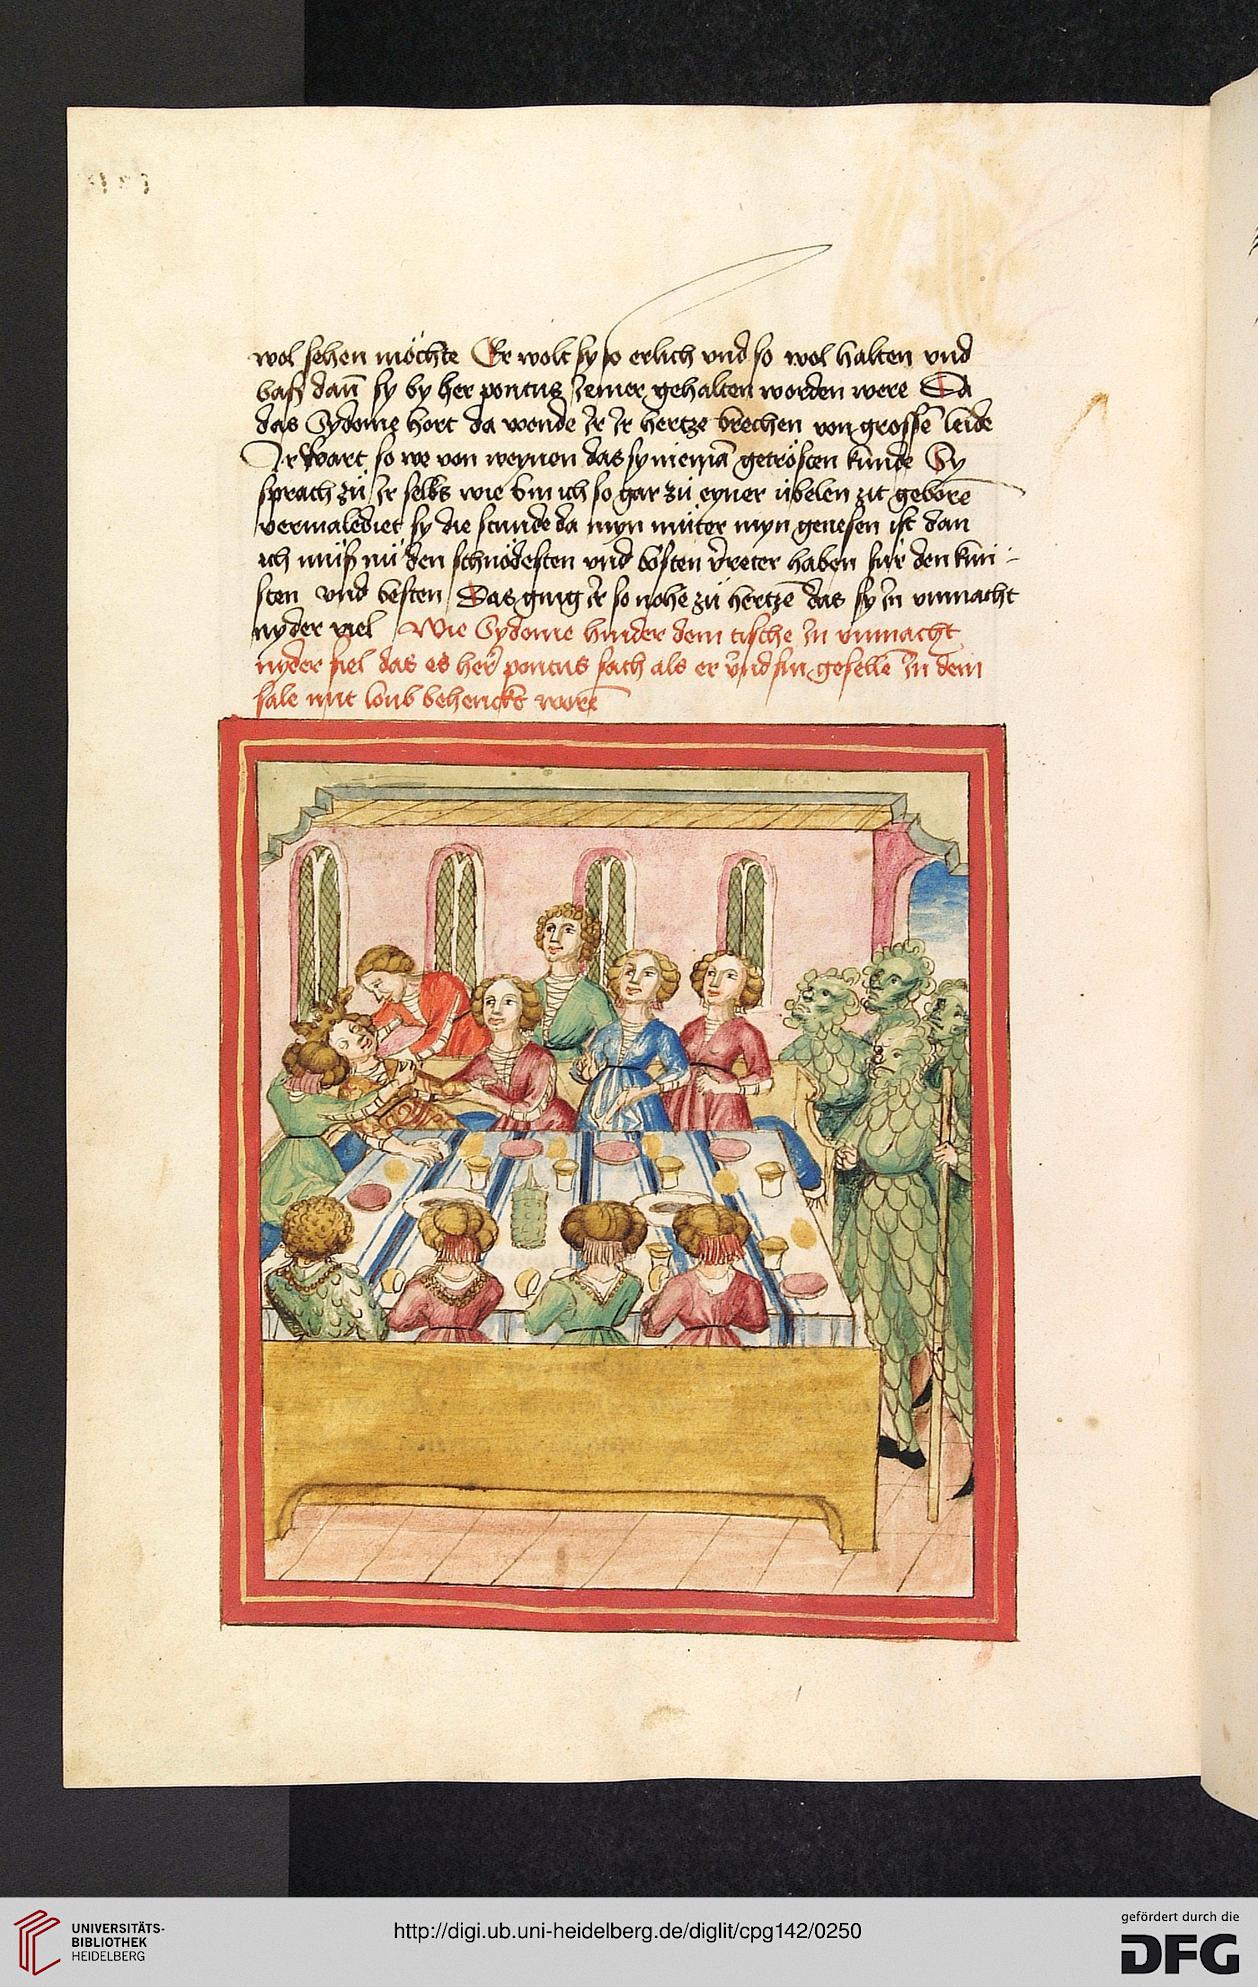 wol sehen möchte Er wolt sy so erlich vnd so wol halten vnd
baß dan̄ sy by her pontus Jemer gehalten worden were Da
das Sydonie hort da wende Jr Jr hertze brechen von grossē leide
Jr wart so we von weynen das sy niemā getrösten kunde Sy
sprach zů Jr selbs wie bin ich so gar zů eyner übelen zit geborē
vermalediet sy die stunde da myn můter myn genesen ist dan
ich můß nů den schnödesten vnd bösten v̄reter haben für den kün
sten vnd besten Das ging Jr so nohe zů hertzē das sy Jn vnmacht
nyder viel Wie Sydonie hinder dem tische Jn vnmacht
nyder fiel das es her pontus sach als er vnd sin gesellē Jn dem
sale mit loub behenckt worē
UNIVERSITÄTS-
BIBLIOTHEK
HEIDELBERG
http://digi.ub.uni-heidelberg.de/diglit/cpg142/0250
gefördert durch die
DFG